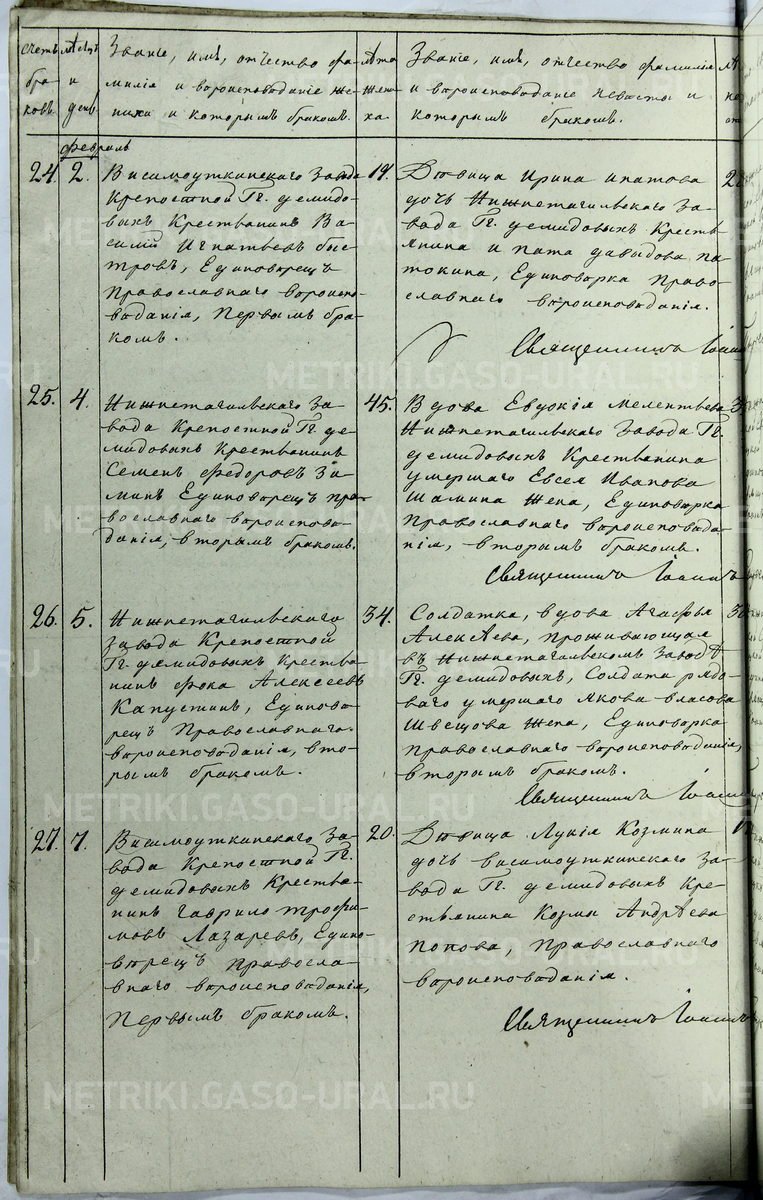 Счетъ бра- ковъ.
Мѣсяцъ и день
Званіе, имѣ, отчество фа-
милія и вѣроисповѣданіе же-
ниха и которымъ бракомъ.
Лѣта
жени-
ха.
Званіе, имѣ, отчество фамилія
и вѣроисповѣданіе невѣсты и
которымъ бракомъ.
Февраль
24. 2.
Висимоуткинскаго Завода
Крепостной Гг. Демидо-
выхъ Крестьянинъ Ва-
силій Игнатьевъ Быс-
тровъ, Единоверецъ
Православнаго вѣроиспо-
вѣданія, первымъ бра-
комъ.
19.
Дѣвица Ирина Ипатова
дочь Нижнетагильскаго За-
вода Гг. Демидовыхъ Кресть-
янина Ипата Давыдова Па-
токина, Единоверка Право-
славнаго вѣроисповѣданія.
Священникъ Іоаннъ
25. 4.
Нижнетагильскаго За-
вода Крепостной Гг. Де-
мидовыхъ Крестьянинъ
Семенъ Федоровъ Зи-
минъ Единоверецъ пра-
вославнаго вѣроиспове-
данія, вторымъ бракомъ.
45.
Вдова Евдокія Мелентьева
Нижнетагильскаго Завода Гг.
Демидовыхъ Крестьянина
умершаго Евсея Иванова
Шамина жена, Единоверка
Православнаго вѣроисповѣда-
нія, вторымъ бракомъ.
Священникъ Іоаннъ
26. 5.
Нижнетагильскаго
Завода Крепостной
Гг. Демидовыхъ Крестья-
нинъ Фока Алексеевъ
Капустинъ, Единове-
рецъ Православнаго
вѣроисповѣданія, вто-
рымъ бракомъ.
34.
Солдатка, вдова Агафья
Алексѣева, проживающая
въ Нижнетагильскомъ Заводѣ
Гг. Демидовыхъ, Солдата рядо-
ваго умершаго Якова Власова
Швецова жена, Единоверка
Православнаго вѣроисповѣданія,
вторымъ бракомъ.
Священникъ Іоаннъ
27. 7.
Висимоуткинскаго За-
вода Крепостной Гг.
Демидовыхъ Крестья-
нинъ Гаврило Трофи-
мовъ Лазаревъ, Едино-
верецъ Правосла-
внаго вѣроисповѣданія,
первымъ бракомъ.
20.
Дѣвица Лукія Козмина
дочь Висимоуткинскаго За-
вода Гг. Демидовыхъ Кре-
стьянина Козмы Андрѣева
Попова, Православнаго
вѣроисповѣданія.
Священникъ Іоаннъ
METRIKI.GASO-URAL.RU